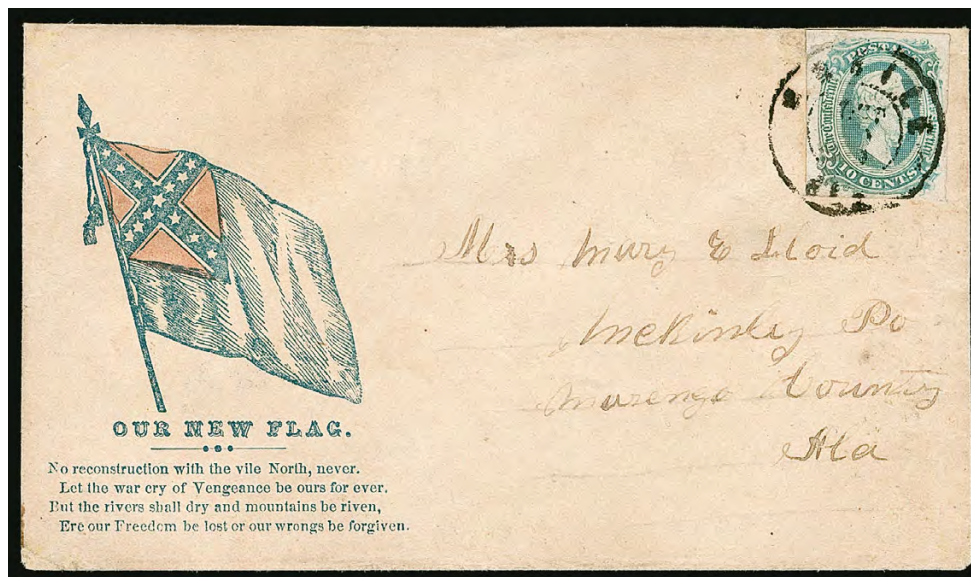 POSTAGE
The Confederate
TEN CENTS
Mrs Mary E Lloid
McKinley Po
Marengo County
Ala
OUR NEW FLAG.
No reconstruction with the vile North, never.
Let the war cry of Vengeance be ours for ever.
But the rivers shall dry and mountains be riven,
Ere our Freedom be lost or our wrongs be forgiven.